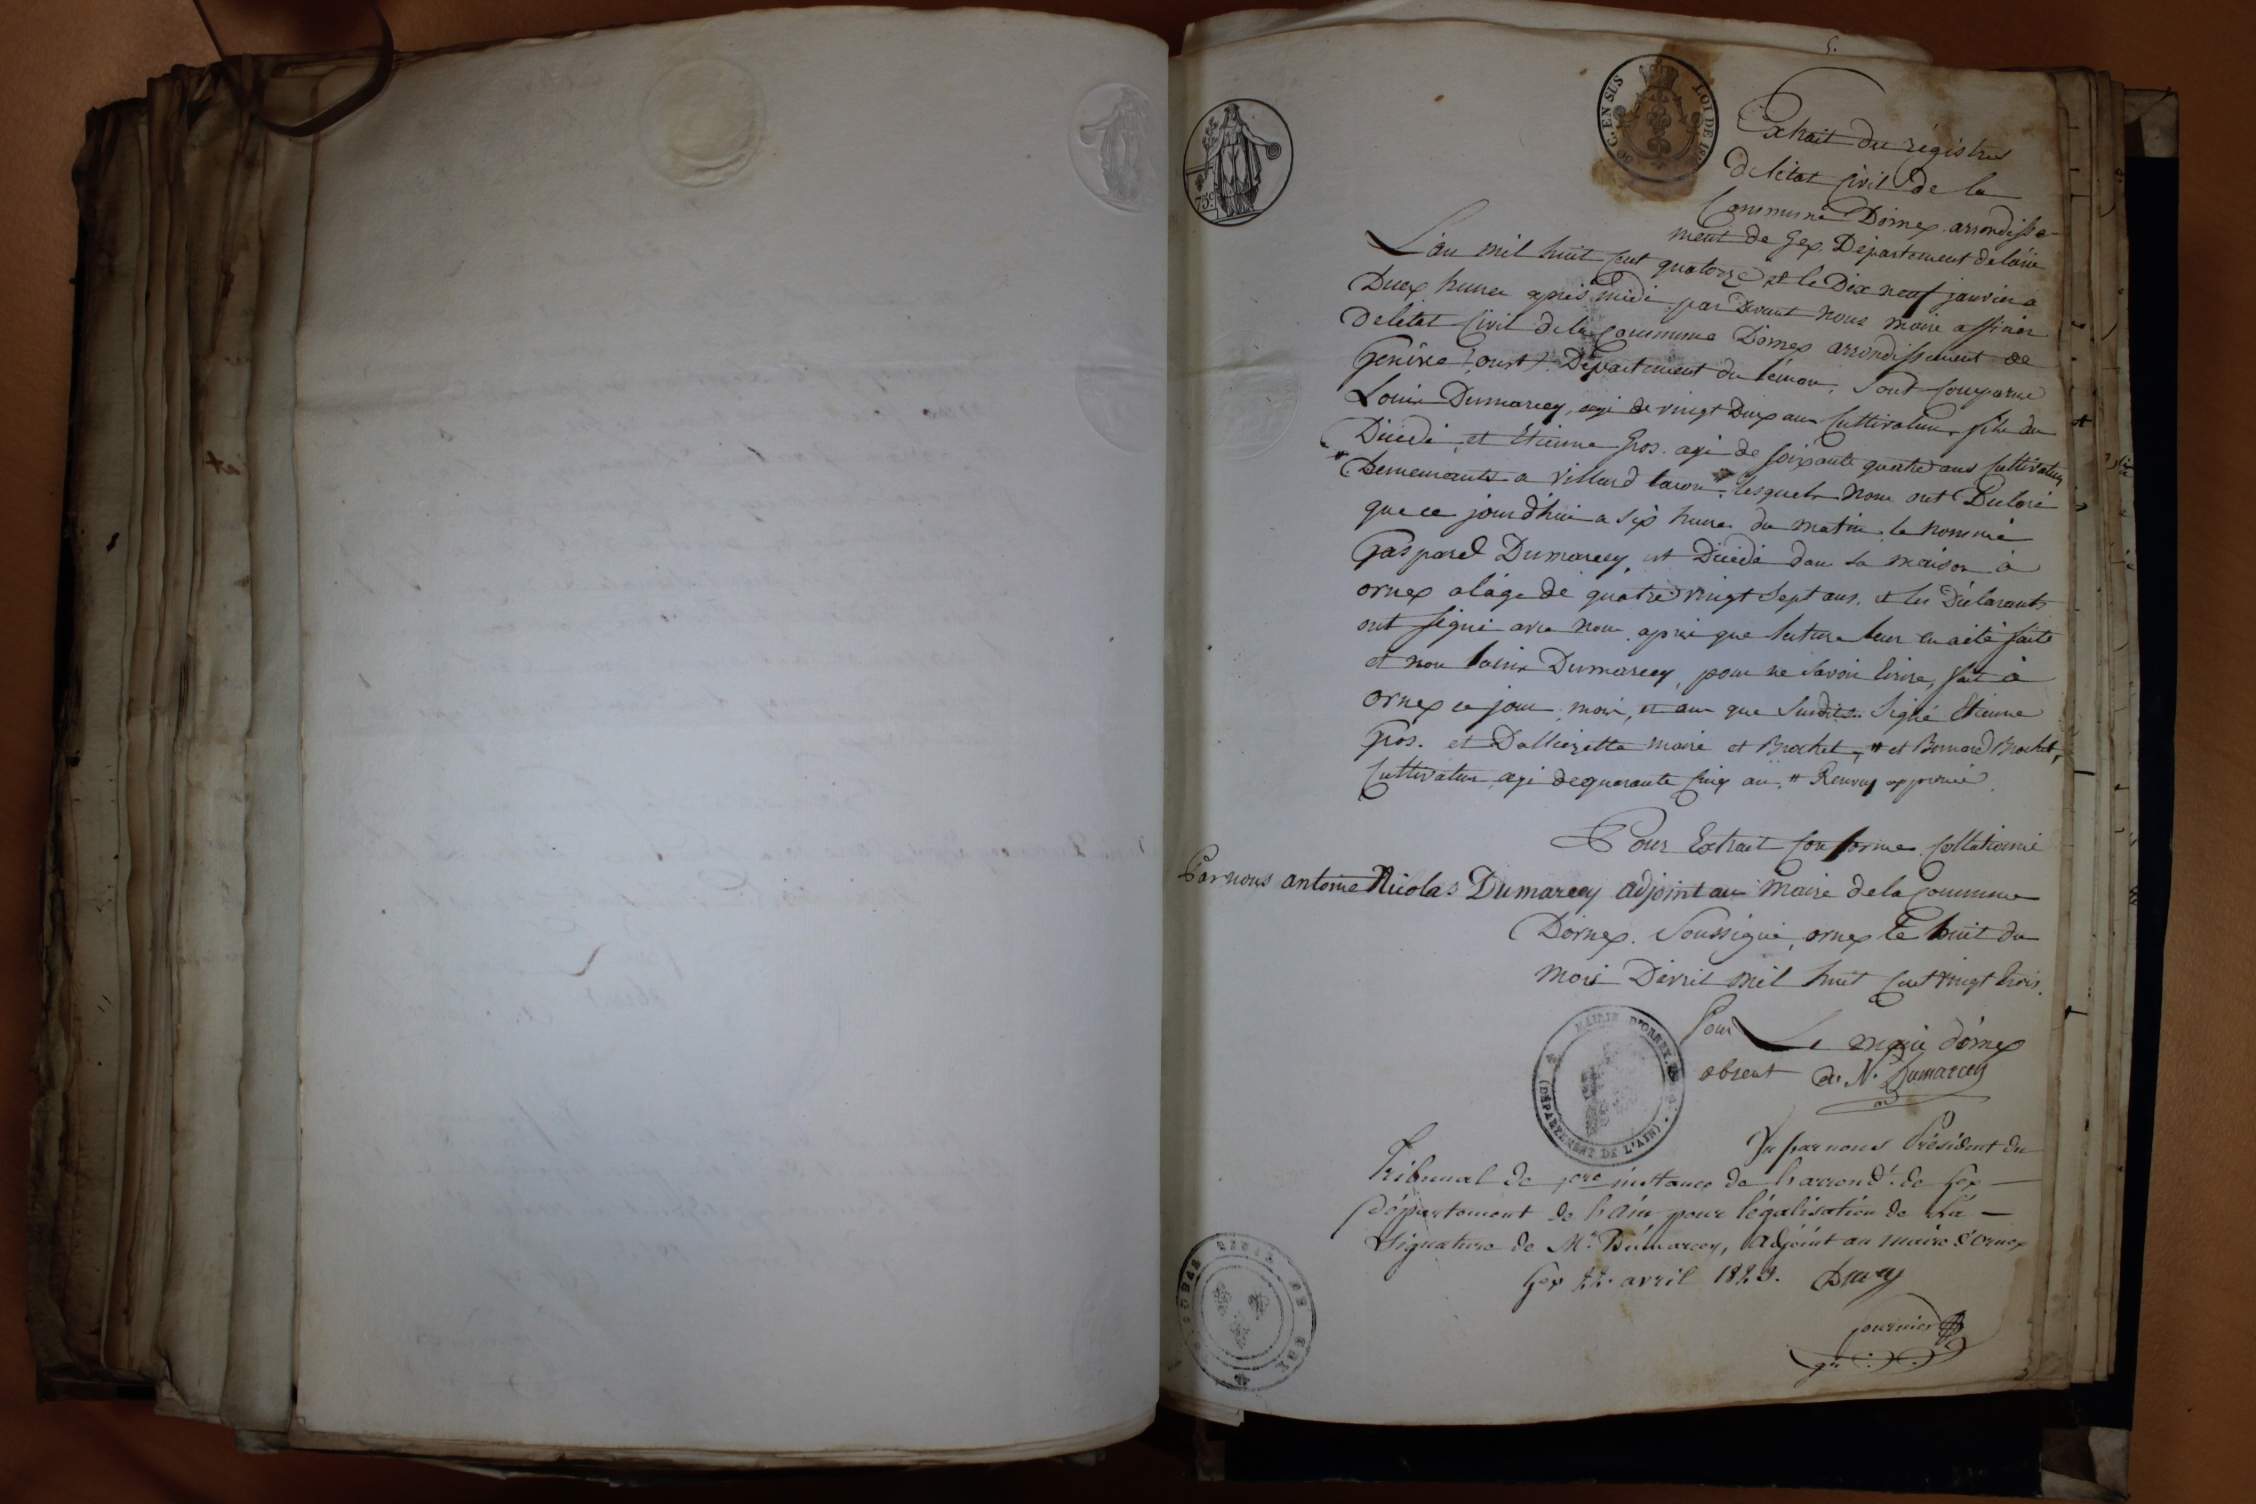 5.
C. EN SUS
LOI DE
75c
Extrait du régistre
de l'état Civil de la
Commune Dornex arrondisse-
ment de Gex Département de l'ain
L'an mil huit Cent quatorze et le Dix neuf janvier a
Deux heures après midi par Devant nous maire officier
De létat Civil de la Commune Dornex arrondissement de
Genève (ouest) Département du léman, Sont Comparus
Louis Dumarcey, agé de vingt Deux ans Cultivateur, fils du
Décédé, et Etienne Gros. agé de soixante quatre ans Cultivateur
Demeurants a villard tacon # lesquels Nous ont Déclaré
que ce jourd'hui a six heures du matin, le nommé
Gaspard Dumarcey, est Décédé dans sa maison à
ornex a l'âge de quatre vingt sept ans, et les Déclarants
ont signé avec nous après que lecture leur en a été faite
et non Louis Dumarcey, pour ne savoir Ecrire, fait à
ornex ce jour, mois, et an que Susdits Signé Etienne
Gros. et Dallierette maire et Brochet, # et Bernard Brochet,
Cultivateur agé de quarante Cinq ans, # Renvoy approuvé
Pour Extrait Conforme Collationné
Par nous antoine Nicolas Dumarcey adjoint au Maire de la Commune
Dornex. Soussigné, ornex le huit du
mois Davril mil huit Cent vingt trois.
Pour Le maire dornex
absent a. N. Dumarcey
MAIRIE D'ORNEX
(DÉPARTEMENT DE L'AIN)
Vu par nous Président du
Tribunal de 1ere instance de l'arrondt. de Gex
Département de l'Ain pour légalisation de la
signature de Mr. Dumarcey, adjoint au maire d'Ornex
Gex 22. avril 1823.
fournier